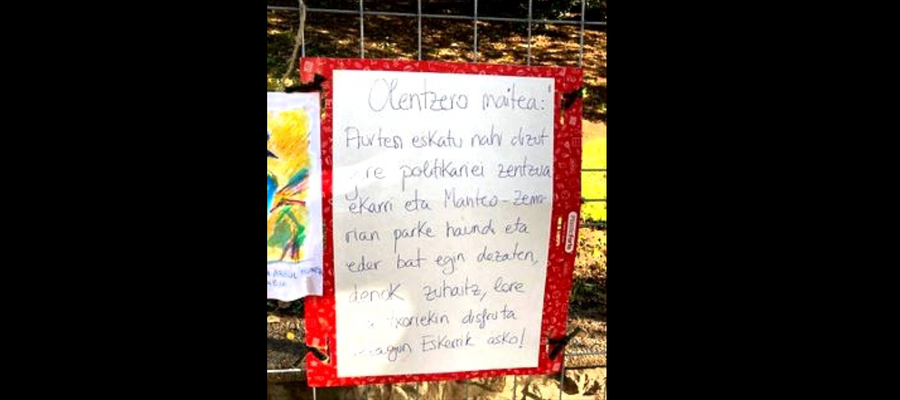 Olentzero maitea:
Aurten eskatu nahi dizut
politikariei zentzua
ekarri eta Manteo-Zema-
rian parke haundi eta
eder bat egin dezaten,
denok zuhaitz, lore
txoriekin disfruta
Eskerrik asko!